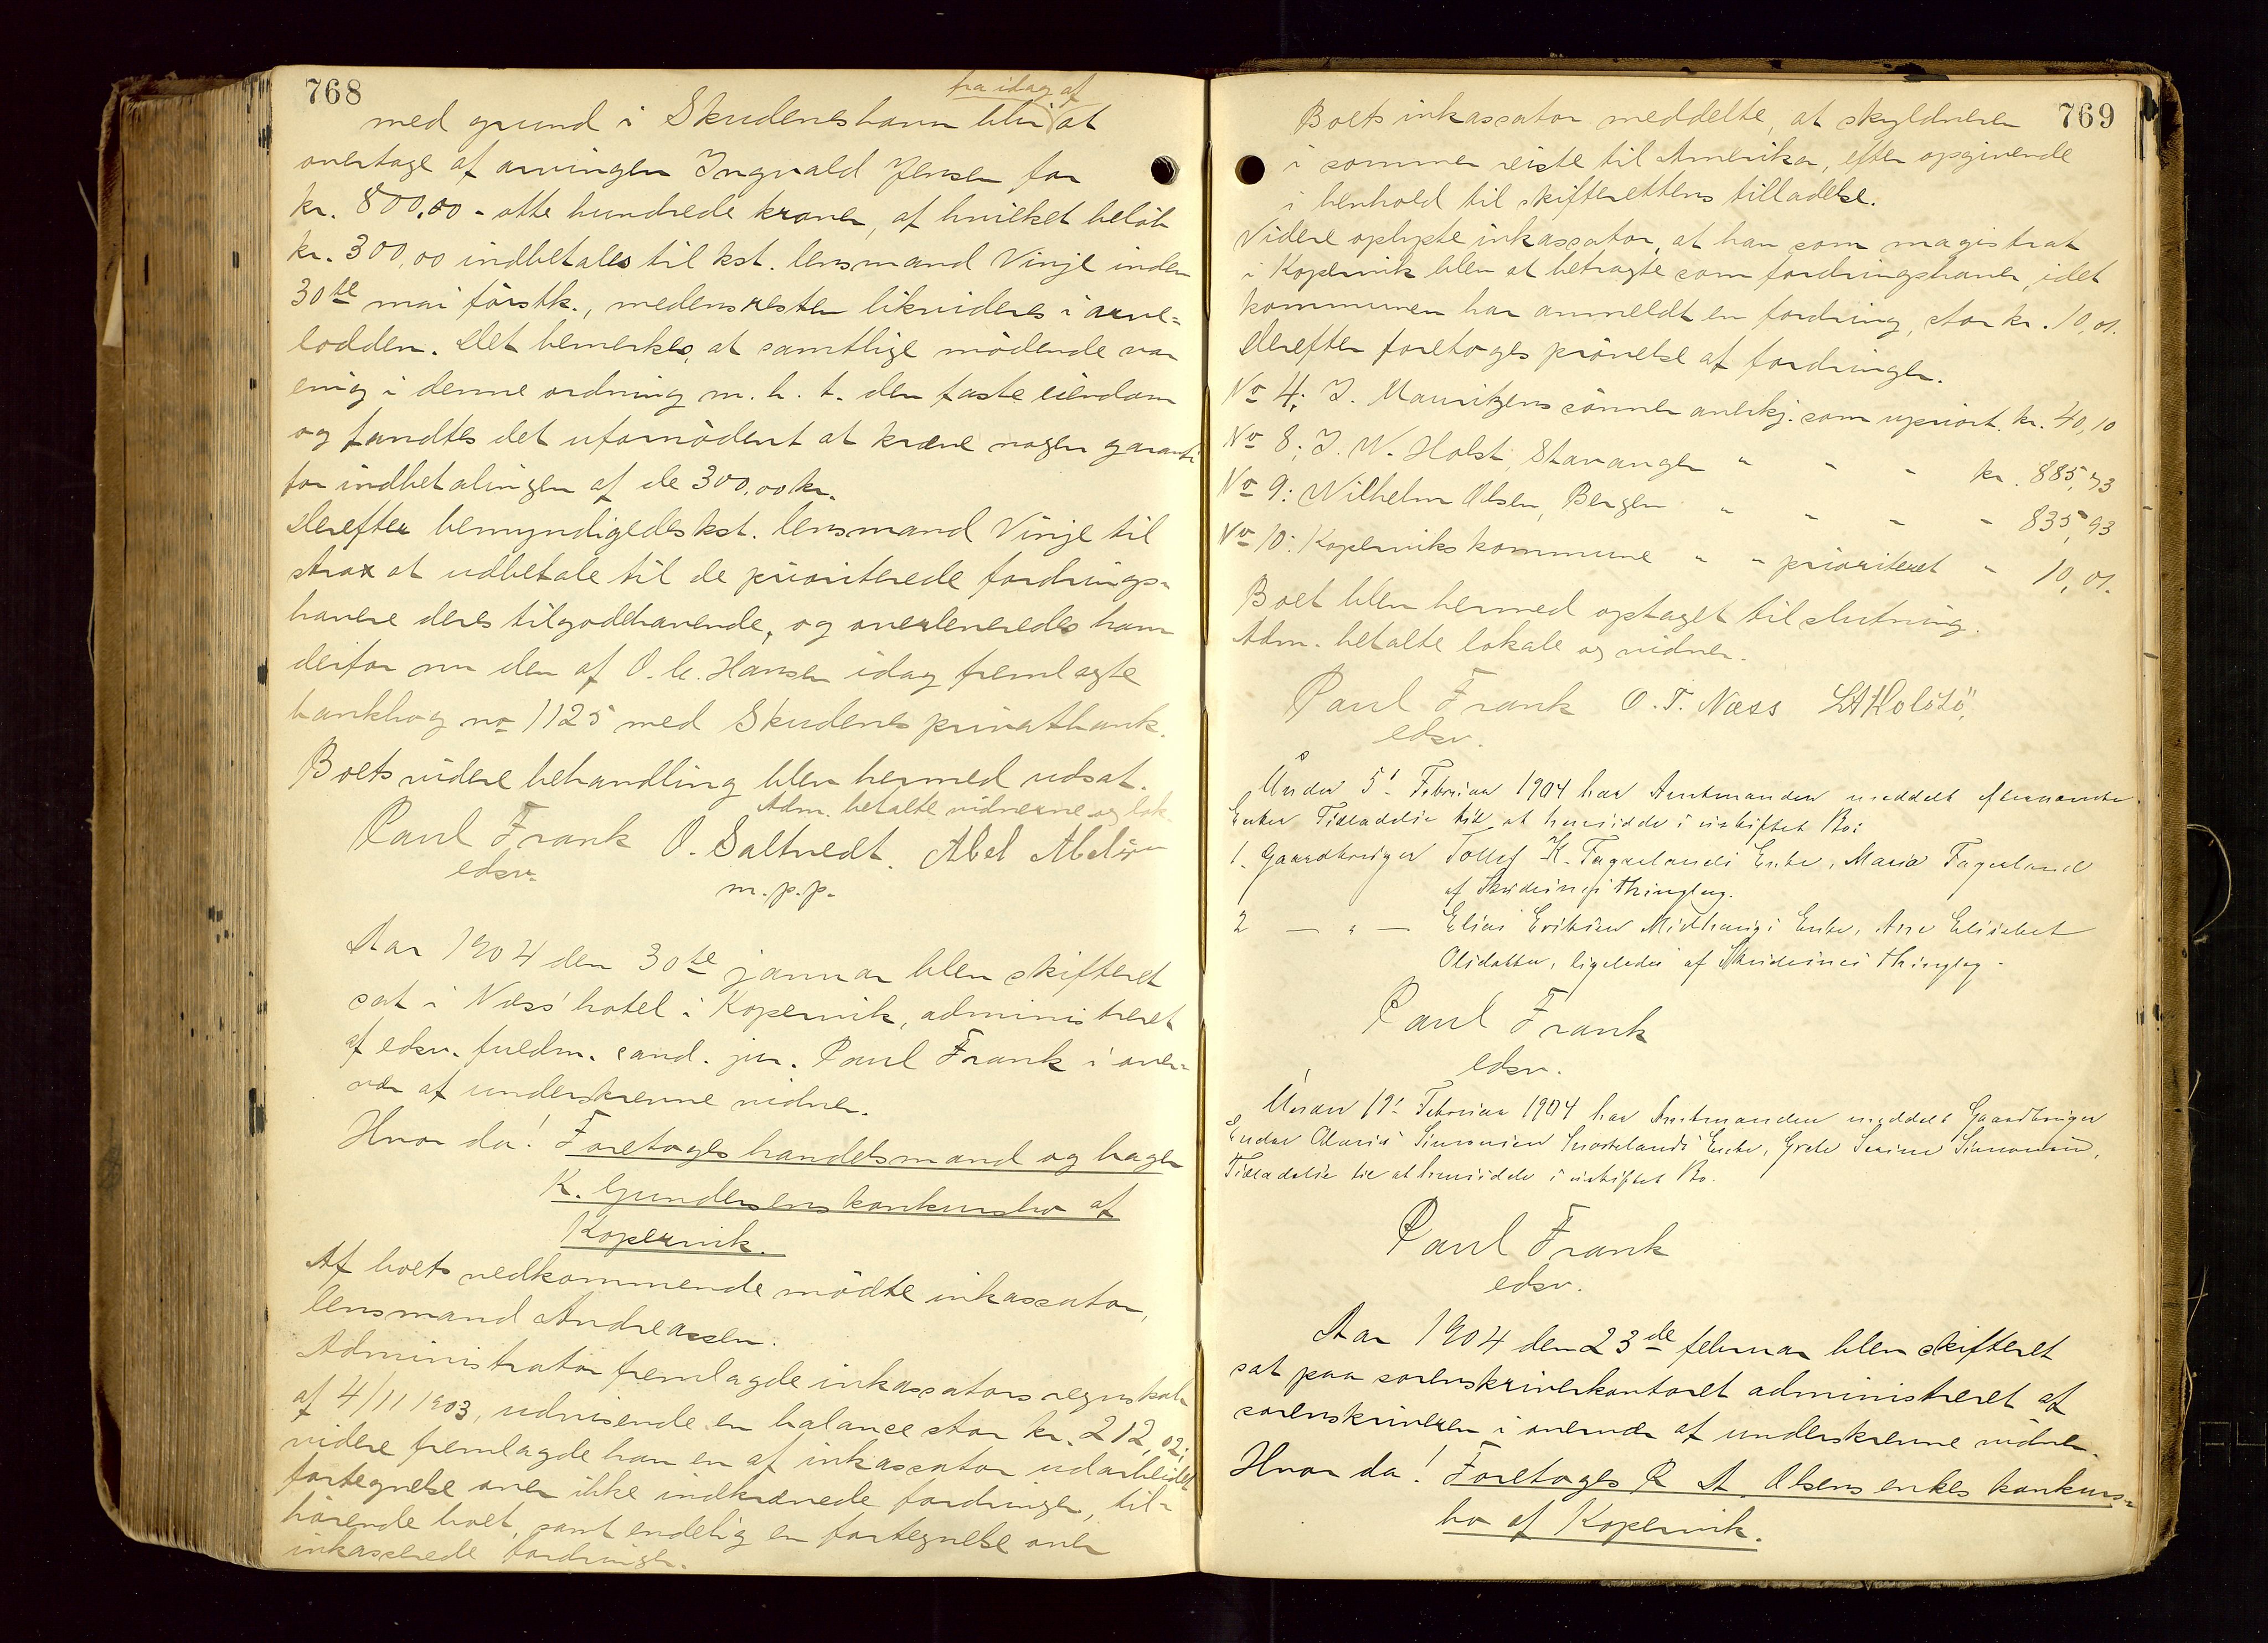 768
fra idag af
med grund i Skudeneshavn blir at
overtage af arvingen Ingvald Jensen for
kr. 800,00 - otte hundrede kroner, af hvilket beløb
kr. 300,00 indbetales til kst. lensmand Vinje inden
30te mai førstk., medens resten likvideres i arve-
lodden. Det bemerkes, at samtlige mødende var
enig i denne ordning m. h. t. den faste eiendom
og fandtes det ufornødent at kræve nogen garanti
for indbetalingen af de 300,00 kr.
Derefter bemyndigedes kst. lensmand Vinje til
strax at udbetale til de prioriterede fordrings-
havere deres tilgodehavende, og overleveredes ham
derfor nu den af O. C. Hansen idag fremlagte
bankbog no 1125 med Skudenes privatbank.
Boets videre behandling blev hermed udsat.
Adm. betalte vidnerne og lok.
Paul Frank O. Saltvedt. Abel Abelsen
edsv. m.p.p.
Aar 1904 den 30te januar blev skifteret
sat i Næss' hotel i Kopervik, administreret
af edsv. fuldm. cand. jur. Paul Frank i over-
vær af underskrevne vidner.
Hvor da! Foretoges handelsmand og bager
K. Gundersens konkursbo af
Kopervik.
Af boets vedkommende mødte inkassator,
lensmand Andreassen.
Administrator fremlagde inkassators regnskab
af 4/11 1903, udvisende en balance stor kr. 212,02;
videre fremlagde han en af inkassator udarbeidet
fortegnelse over ikke indkrævede fordringer, til-
hørende boet, samt endelig en fortegnelse over
inkasserede fordringer.
769
Boets inkassator meddelte, at skyldneren
i sommer reiste til Amerika, efter opgivende
i henhold til skifterettens tilladelse.
Videre oplyste inkassator, at han som magistrat
i Kopervik blev at betragte som fordringshaver, idet
kommunen har anmeldt en fordring, stor kr. 10,01.
Derefter foretoges prøvelse af fordringer.
No 4: J. Mauritzens sønner anerkj. som upriort. kr. 40,10
No 8: J. W. Holst, Stavanger " " " kr. 885,73
No 9: Wilhelm Olsen, Bergen " " " " 835,93
No 10: Koperviks kommune " " prioriteret " 10,01.
Boet blev hermed optaget til slutning.
Adm. betalte lokale og vidner.
Paul Frank O. T. Næss
edsv.
Under 5' Februar 1904 har Amtmanden meddelt efternævnte
Enker Tilladelse til at hensidde i uskiftet Bo:
1. Gaardbruger Tollef K. Fagerlands Enke, Maria Fagerland
af Skudenes Thinglag.
2 — " — Elias Eriksen Midhaugs Enke, Ane Elisabet
Olsdatter, ligeledes af Skudenes Thinglag.
Paul Frank
edsv.
Under 19' Februar 1904 har Amtmanden meddelt Gaardbruger
Simonsen Enke, Grete Serine Simonsen,
Tilladelse til at hensidde i uskiftet Bo.
Paul Frank
edsv.
Aar 1904 den 23de februar blev skifteret
sat paa sorenskriverkontoret administreret af
sorenskriveren i overvær af underskrevne vidner.
Hvor da! Foretoges R A. Olsens enkes konkurs-
bo af Kopervik.